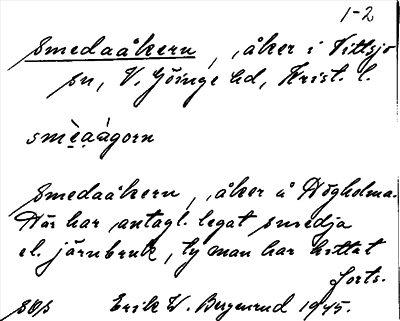 1-2
Smedaåkern, åker i Vittsjö
sn, V. Göinge hd, Krist. l.
smèaàgorn
Smedaåkern, åker å Högholma.
Där har antagl. legat smedja
el. järnbruk, ty man har hittat
forts.
Erik W. Bergenrud 1945.